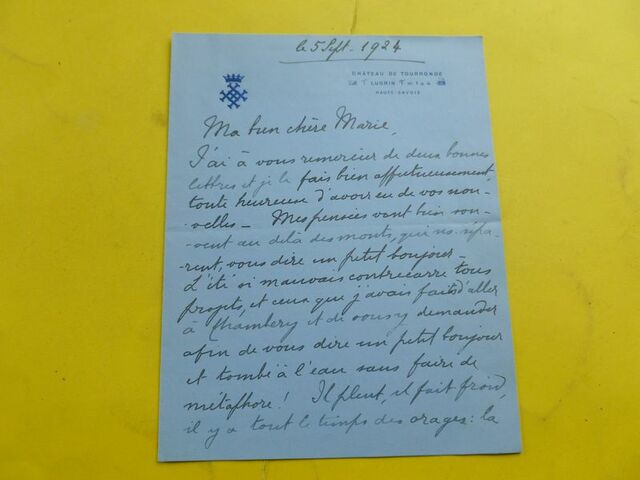 le 5 Sept. 1924
CHÂTEAU DE TOURRONDE
LUGRIN
HAUTE-SAVOIE
Ma bien chère Marie,
J'ai à vous remercier de deux bonnes
lettres et je le fais bien affectueusement,
toute heureuse d'avoir eu de vos nou-
-velles - Mes pensées vont bien sou-
-vent au delà des monts, qui ns. sépa-
-rent, vous dire un petit bonjour -
L'été si mauvais contrecarre tous
projets, et ceux que j'avais faits d'aller
à Chambery et de vous y demander
afin de vous dire un petit bonjour
et tombé à l'eau sans faire de
métaphore! Il pleut, il fait froid,
il y a tout le temps des orages: la